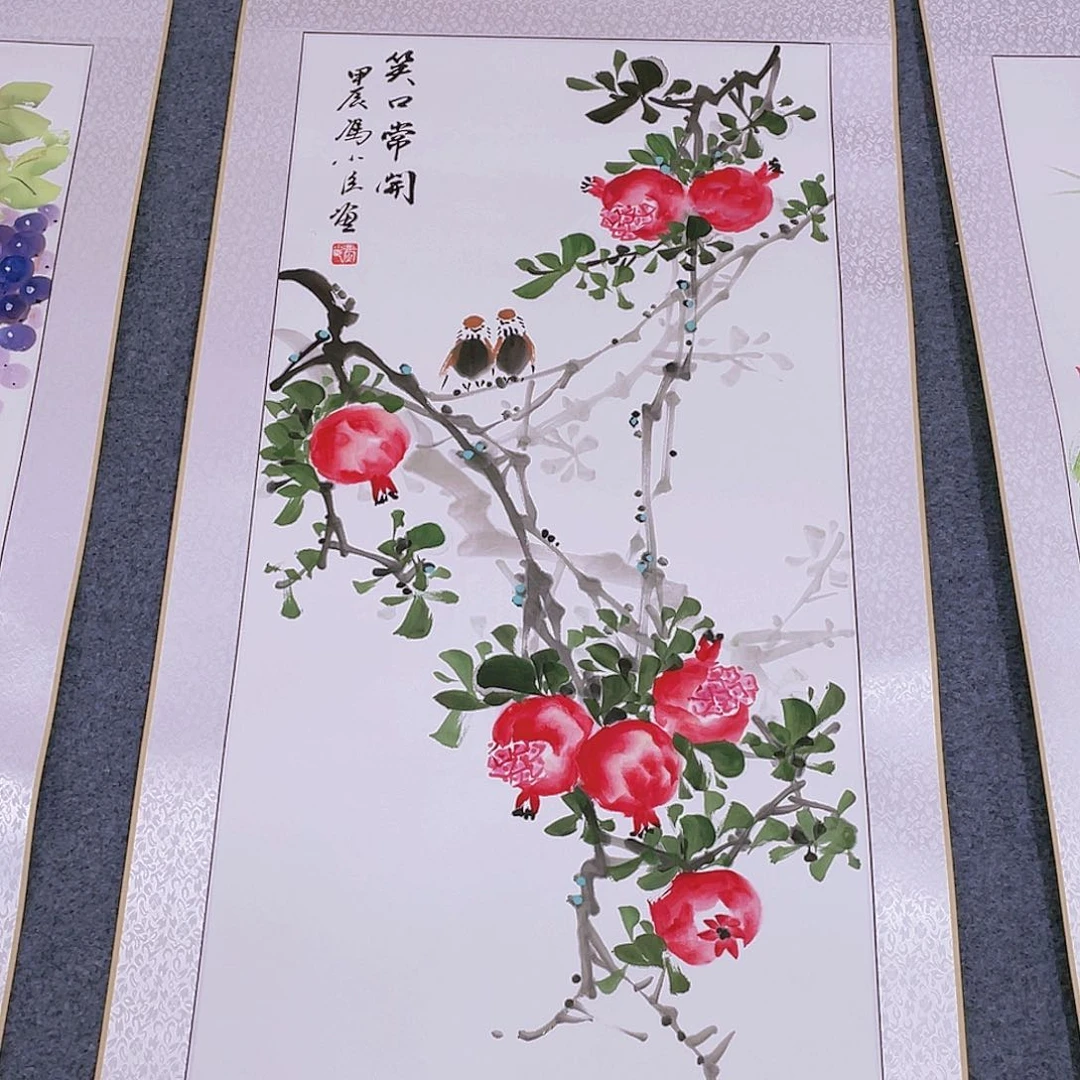 笑口常開
甲辰馮小臣畫